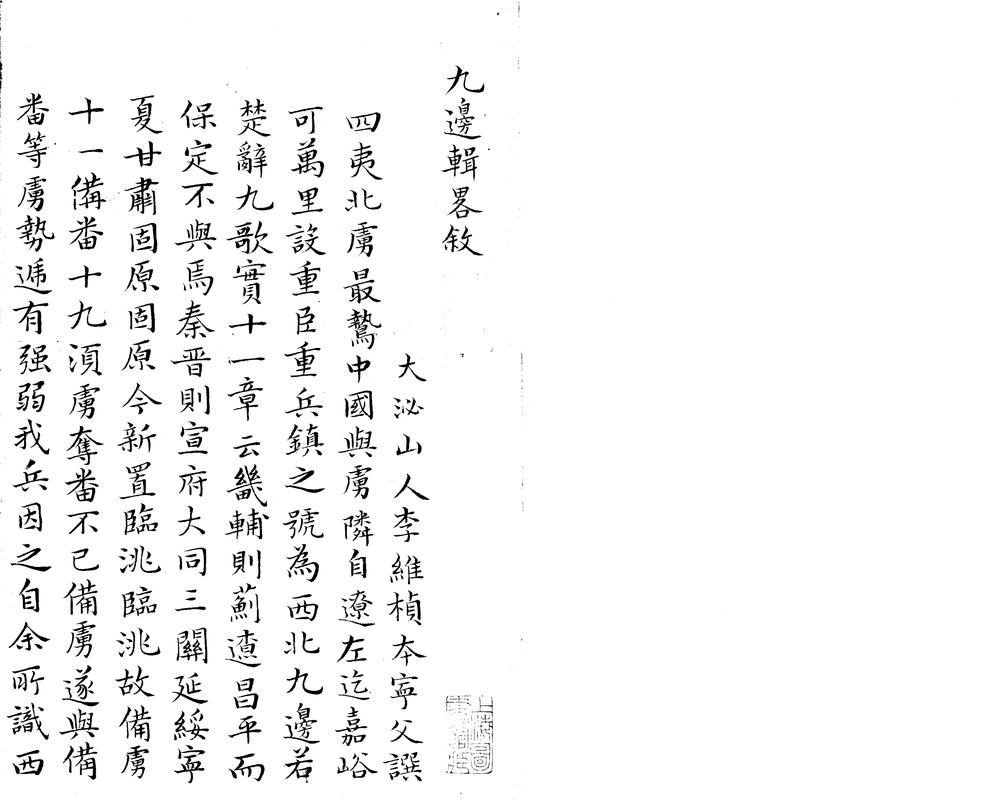 九邊輯畧敘
大泌山人李維楨本寧父譔
四夷北虜最驁中國與虜隣自遼左迄嘉峪
可萬里設重臣重兵鎮之號為西北九邊若
楚辭九歌實十一章云畿輔則薊遼昌平而
保定不與焉秦晉則宣府大同三關延綏寧
夏甘肅固原固原今新置臨洮臨洮故備虜
十一備番十九湏虜奪番不已備虜遂與備
番等虜勢遞有强弱我兵因之自余所識西